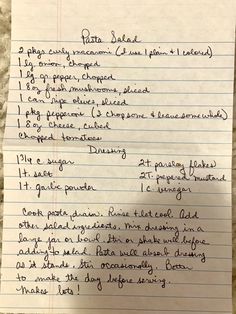 Pasta Salad
2 pkgs curly macaroni (I use 1 plain & 1 colored)
1 lg onion, chopped
1 lg gr pepper, chopped
1 8oz fresh mushrooms, sliced
1 can ripe olives, sliced
1 pkg pepperoni (I chop some & leave some whole)
1 8 oz cheese, cubed
Chopped tomatoes
Dressing
1 3/4 c sugar 2t. parsley flakes
1t. salt 2T. prepared mustard
1t. garlic powder 1 c. vinegar
Cook pasta, drain. Rinse & let cool. Add
other salad ingredients. Mix dressing in a
large jar or bowl. Stir or shake well before
adding to salad. Pasta will absorb dressing
as it stands. Stir occasionally. Better
to make the day before serving.
Makes lots!